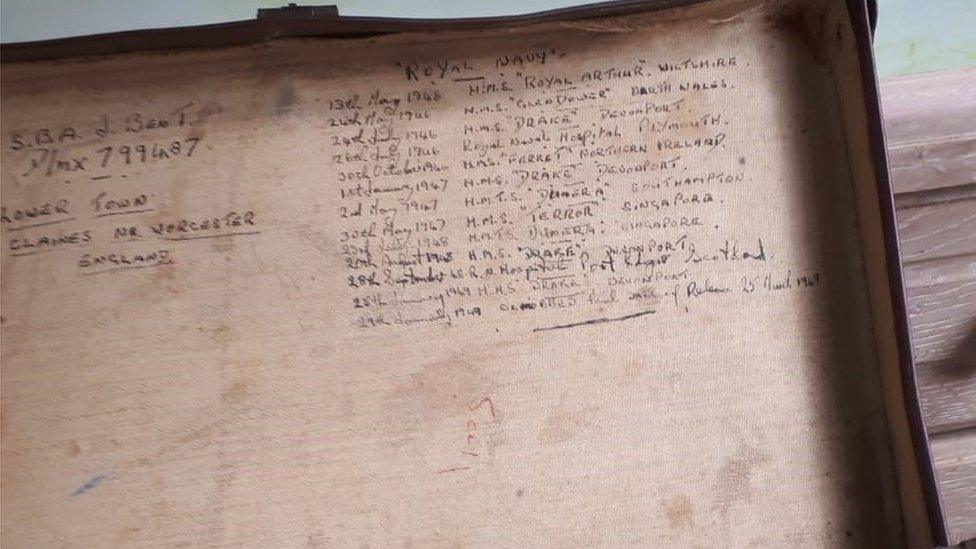 S.B.A. J. BENT.
D/MX 799487.
LOWER TOWN
CLAINES NR WORCESTER
ENGLAND
"ROYAL NAVY".
13th May 1946 H.M.S. "ROYAL ARTHUR". WILTSHIRE.
24th May 1946 H.M.S. "GLENDOWER" NORTH WALES.
24th July 1946 H.M.S. "DRAKE" DEVONPORT
26th July 1946 Royal Naval Hospital PLYMOUTH.
30th October 1946 H.M.S. "FERRET" NORTHERN IRELAND.
1st January 1947 H.M.S. "DRAKE" DEVONPORT.
2nd May 1947 H.M.T.S. "DUNERA" SOUTHAMPTON.
30th May 1947 H.M.S. "TERROR" SINGAPORE.
23rd July 1948 H.M.T.S. DUNERA. SINGAPORE.
20th August 1948 H.M.S. "DRAKE" DEVONPORT
28th September 48 R.N. Hospital Port Edgar Scotland.
25th January 1949 H.M.S. DRAKE DEVONPORT
29th January 1949 DEMOBBED date of Release 25 March 1949